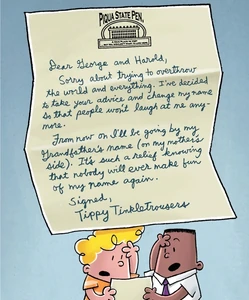 PIQUA STATE PEN.
Dear George and Harold,
Sorry about trying to overthrow
the world and everything. I've decided
to take your advice and change my name
so that people won't laugh at me any-
more.
From now on I'll be going by my
Grandfather's name (on my mother's
side). It's such a relief knowing
that nobody will ever make fun
of my name again.
Signed,
Tippy Tinkletrousers